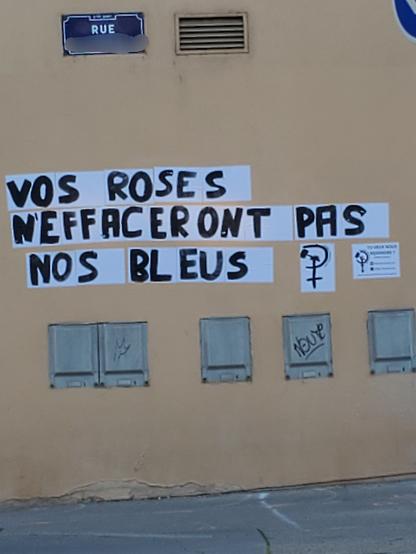 RUE
VOS ROSES
N'EFFACERONT PAS
NOS BLEUS
TU VEUX NOUS
REJOINDRE ?